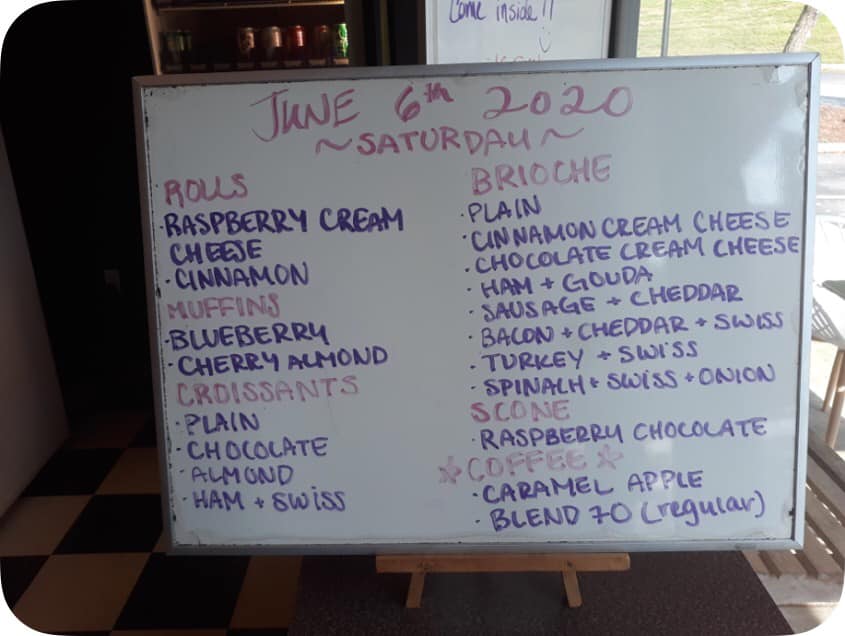 Come inside!!
JUNE 6th 2020
~SATURDAY~
ROLLS
·RASPBERRY CREAM
CHEESE
·CINNAMON
MUFFINS
·BLUEBERRY
·CHERRY ALMOND
CROISSANTS
·PLAIN
·CHOCOLATE
·ALMOND
·HAM + SWISS
BRIOCHE
·PLAIN
·CINNAMON CREAM CHEESE
·CHOCOLATE CREAM CHEESE
·HAM + GOUDA
·SAUSAGE + CHEDDAR
·BACON + CHEDDAR + SWISS
·TURKEY + SWISS
·SPINACH + SWISS + ONION
SCONE
·RASPBERRY CHOCOLATE
☆COFFEE☆
·CARAMEL APPLE
·BLEND 70 (regular)